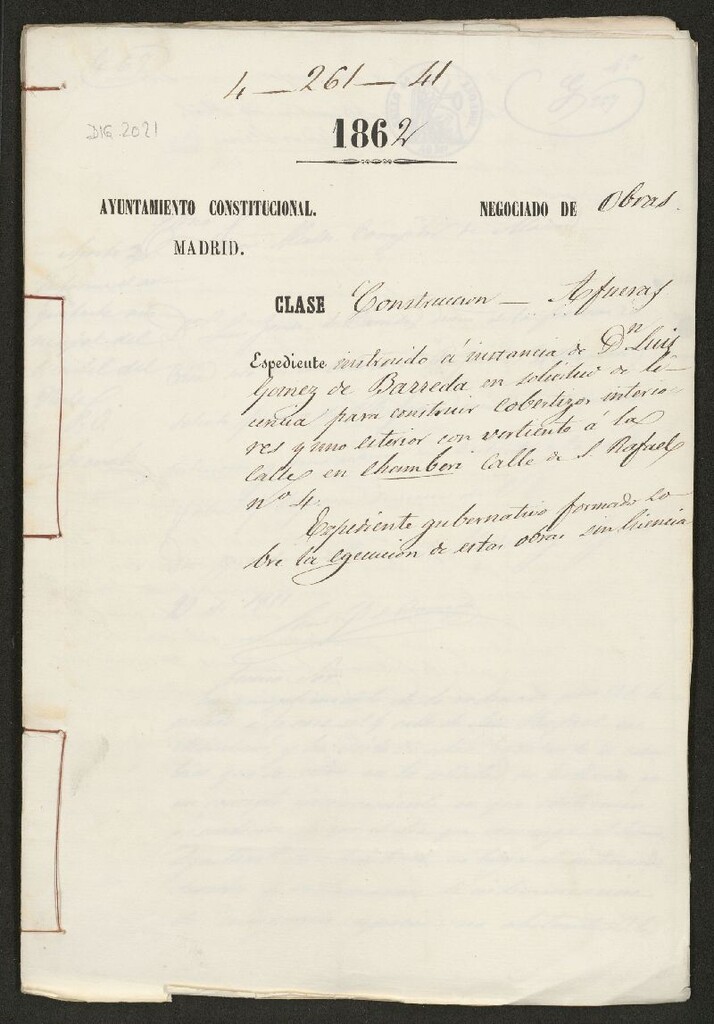 4 — 261 — 41
DIG. 2021
1862
AYUNTAMIENTO CONSTITUCIONAL.
MADRID.
NEGOCIADO DE Obras.
CLASE Construccion — Afueras
Espediente instruido á instancia de Dn Luis
Gomez de Barreda en solicitud de li-
cencia para construir cobertizos interio-
res y uno esterior con vertiente á la
Calle en Chamberi Calle de S. Rafael
nº 4.
Expediente gubernativo formado so-
bre la egecucion de estas obras sin licencia